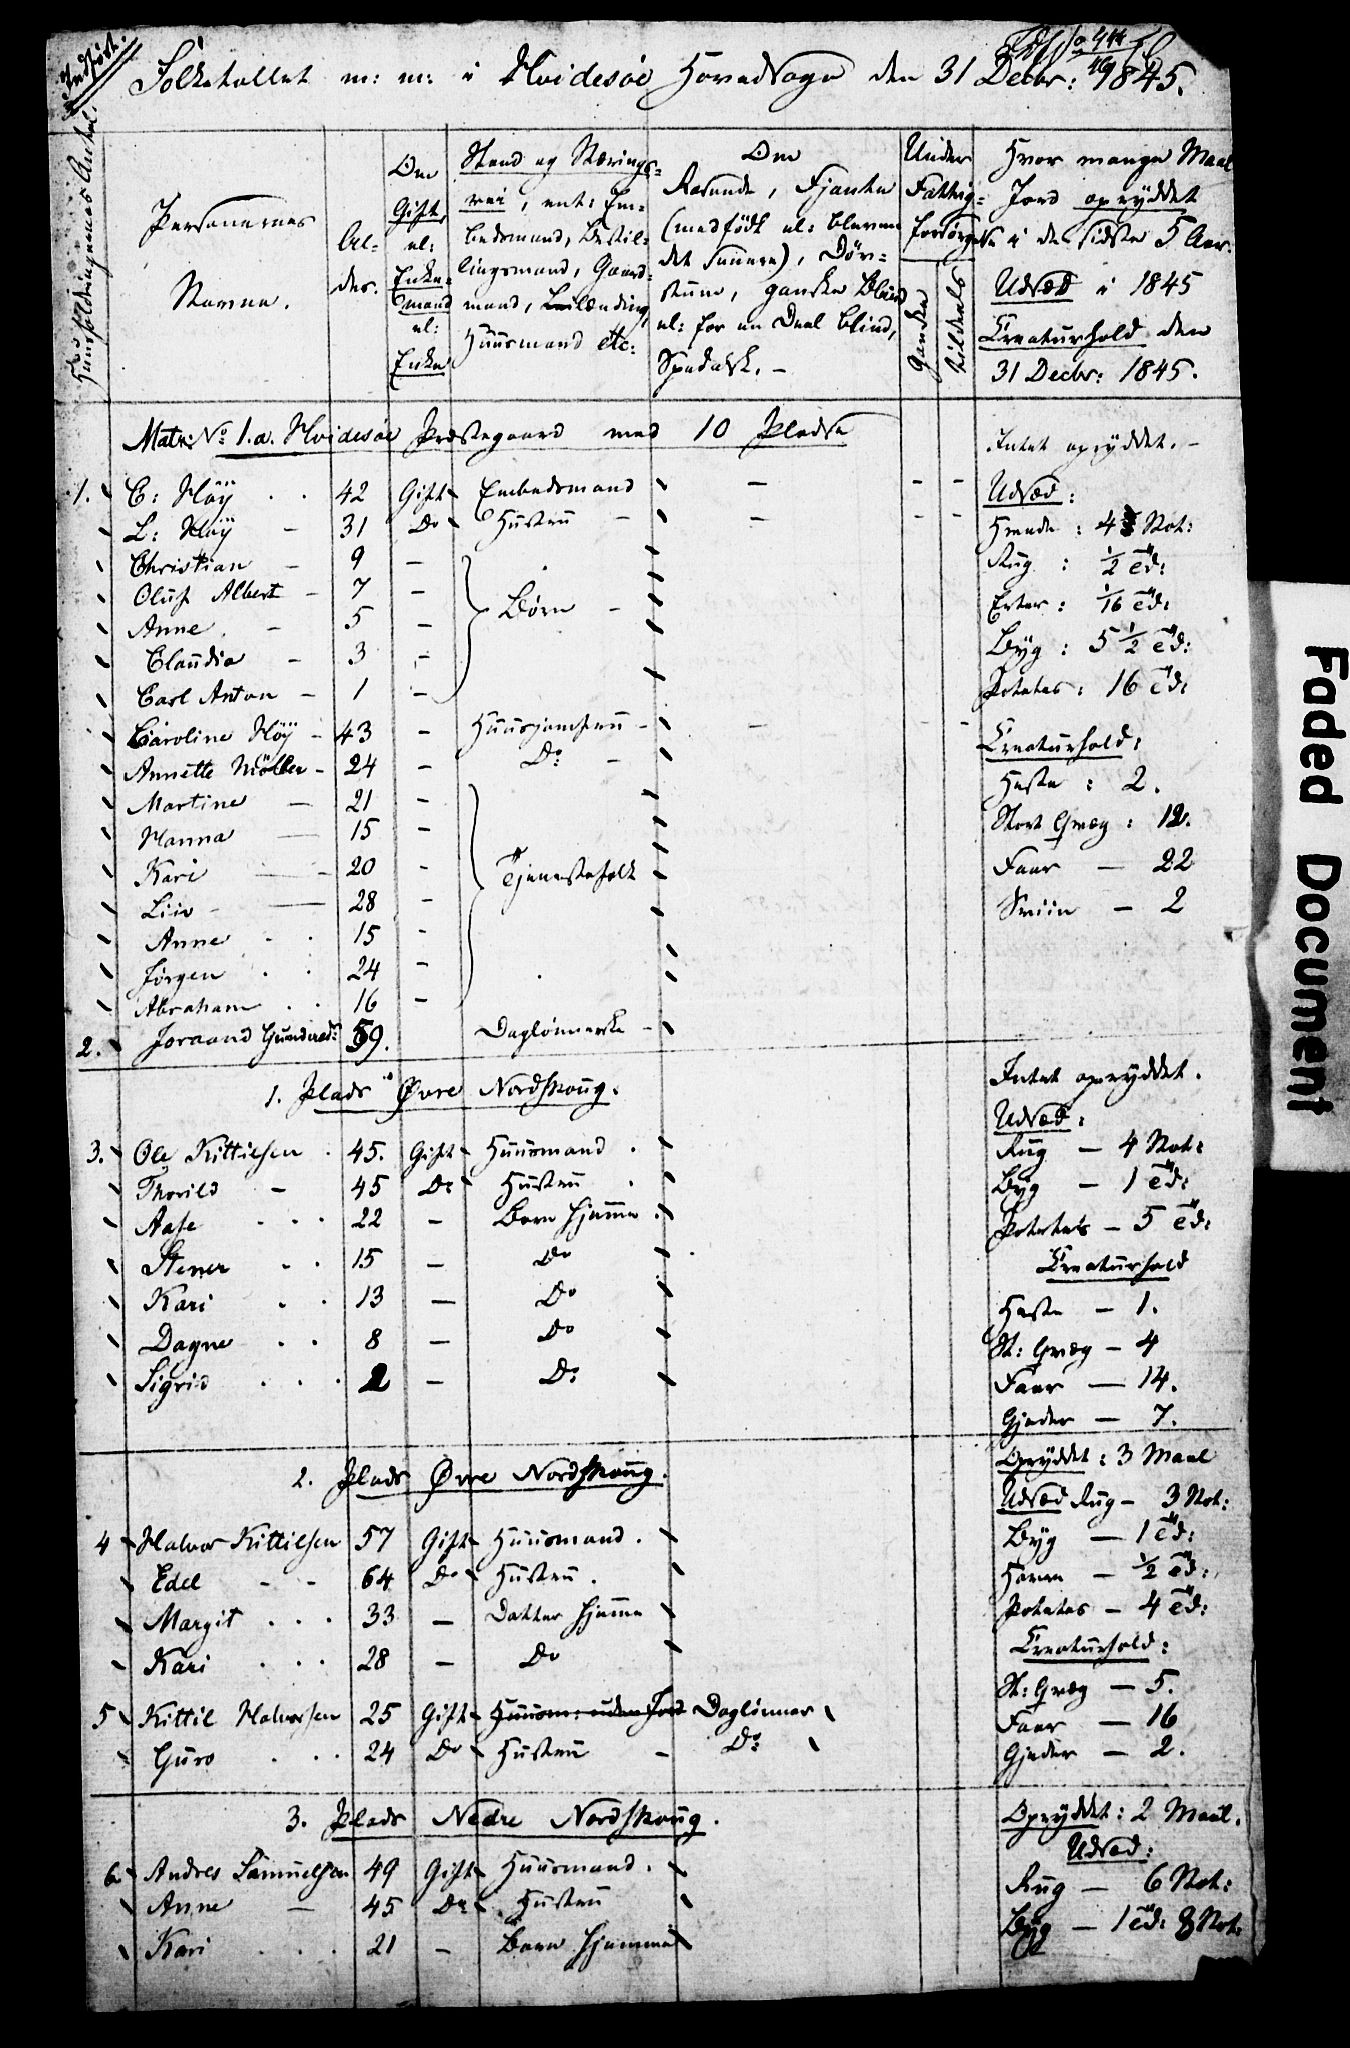 Indført.
Folketallet m: m: i Hvidesøe Hovedsogn den 31 Decbr: 1845.
Huusholdningernes Antal.
Personernes Navne.
Al-
der.
Om
Gift,
el:
Enke-
mand
el:
Enke
Stand og Nærings-
vei, ent: Em-
bedsmand, Bestil-
lingsmand, Gaard-
mand, Leilænding,
Huusmand etc:
Om
Rasende, Fjante
(medfödt el: bleven
det senere), Döv-
stum, ganske Blind
el: for en Deel blind,
Spedalsk. -
Under
Fattig-
forsørgelse
ganske
tildeels
Hvor mange Maal
Jord opryddet
i de sidste 5 Aar.
Udsæd i 1845
Creaturhold den
31 Decbr: 1845.
Matr: No 1.a. Hvidesøe Præstegaard med 10 Pladse
Intet opryddet. -
1. C: Höÿ . . 42 Gift Embedsmand - - -
Udsæd:
L: Höÿ - 31 Do Hustru - - - -
Hvede : 4 Skt:
Christian - 9 -
Rug : 1/2 Td:
Oluf Albert - 7 - Börn -
Erter : 1/16 Td:
Anne . - 5 -
Byg : 5 1/2 Td:
Claudia - 3 -
Carl Anton - 1 -
Potetes : 16 Td:
Caroline Höÿ - 43 - Huusjomfru - - - -
Creaturhold:
Annette Möller - 24 - Do: -
Heste : 2.
Martine - 21 -
Stort Qvæg : 12.
Hanna - 15 -
Kari - 20 - Tjenestefolk
Faar - 22
Liiv - 28 -
Sviin - 2
Anne . . 15 -
Jörgen . . 24 -
Abraham . . 16 -
2. Joraand Gunderd: 59. Daglönnerske -
1. Plads Övre Nordskoug.
Intet opryddet.
Udsæd:
3. Ole Kittilsen . 45. Gift Huusmand .
Rug - 4 Skt:
Thorild - 45 Do Hustru .
Byg - 1 Td:
Aase . . . 22 - Barn hjemme .
Potetes - 5 Td:
Stener . . 15 - Do
Creaturhold
Kari . . 13 - Do
Heste - 1.
Dagne . . 8 - Do
St: Qvæg - 4
Sigrid . . . 2 - Do:
Faar - 14.
Gjeder - 7.
2. Plads Övre Nordskoug.
Opryddet : 3 Maal
Udsæd Rug - 3 Skt:
4 Halvor Kittilsen 57 Gift Huusmand .
Byg - 1 Td:
Edel - - 64 Do Hustru .
Havre - 1/2 Td:
Margit . . . 33 - Datter hjemme
Potetes - 4 Td:
Kari . . . 28 - Do
Creaturhold:
St: Qvæg - 5.
5 Kittil Halvorsen 25 Gift Huusm: uden Jord Daglönner
Faar - 16
Guro . . . 24 Do Hustru - Do:
Gjeder - 2.
3. Plads Nedre Nordskoug.
Opryddet : 2 Maal.
Udsæd:
6 Andres Samuelsen 49 Gift Huusmand .
Rug - 6 Skt:
Anne - 45 Do Hustru
Byg - 1 Td: 8 Skt:
Kari . . . 21 - Barn hjemme
Faded Document